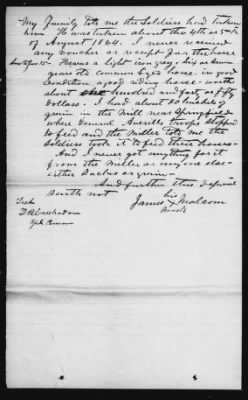 My family told me the Soldiers had taken
him. He was taken about the 4th or 5th
of August 1864. I never received
any voucher or receipt for the horse
He was a light iron grey, six or seven
years old common sized horse in good
condition a good riding horse worth
about one hundred and forty or fifty
dollars. I had about 20 bushels of
grain in the mill near Springfield
where General Averills troops stopped
to feed and the Miller told me the
Soldiers took it to feed their horses
And I never got anything for it
from the Miller or any one else
either or grain
And further this deponent
saith not
his
James X Malcom
mark
Test